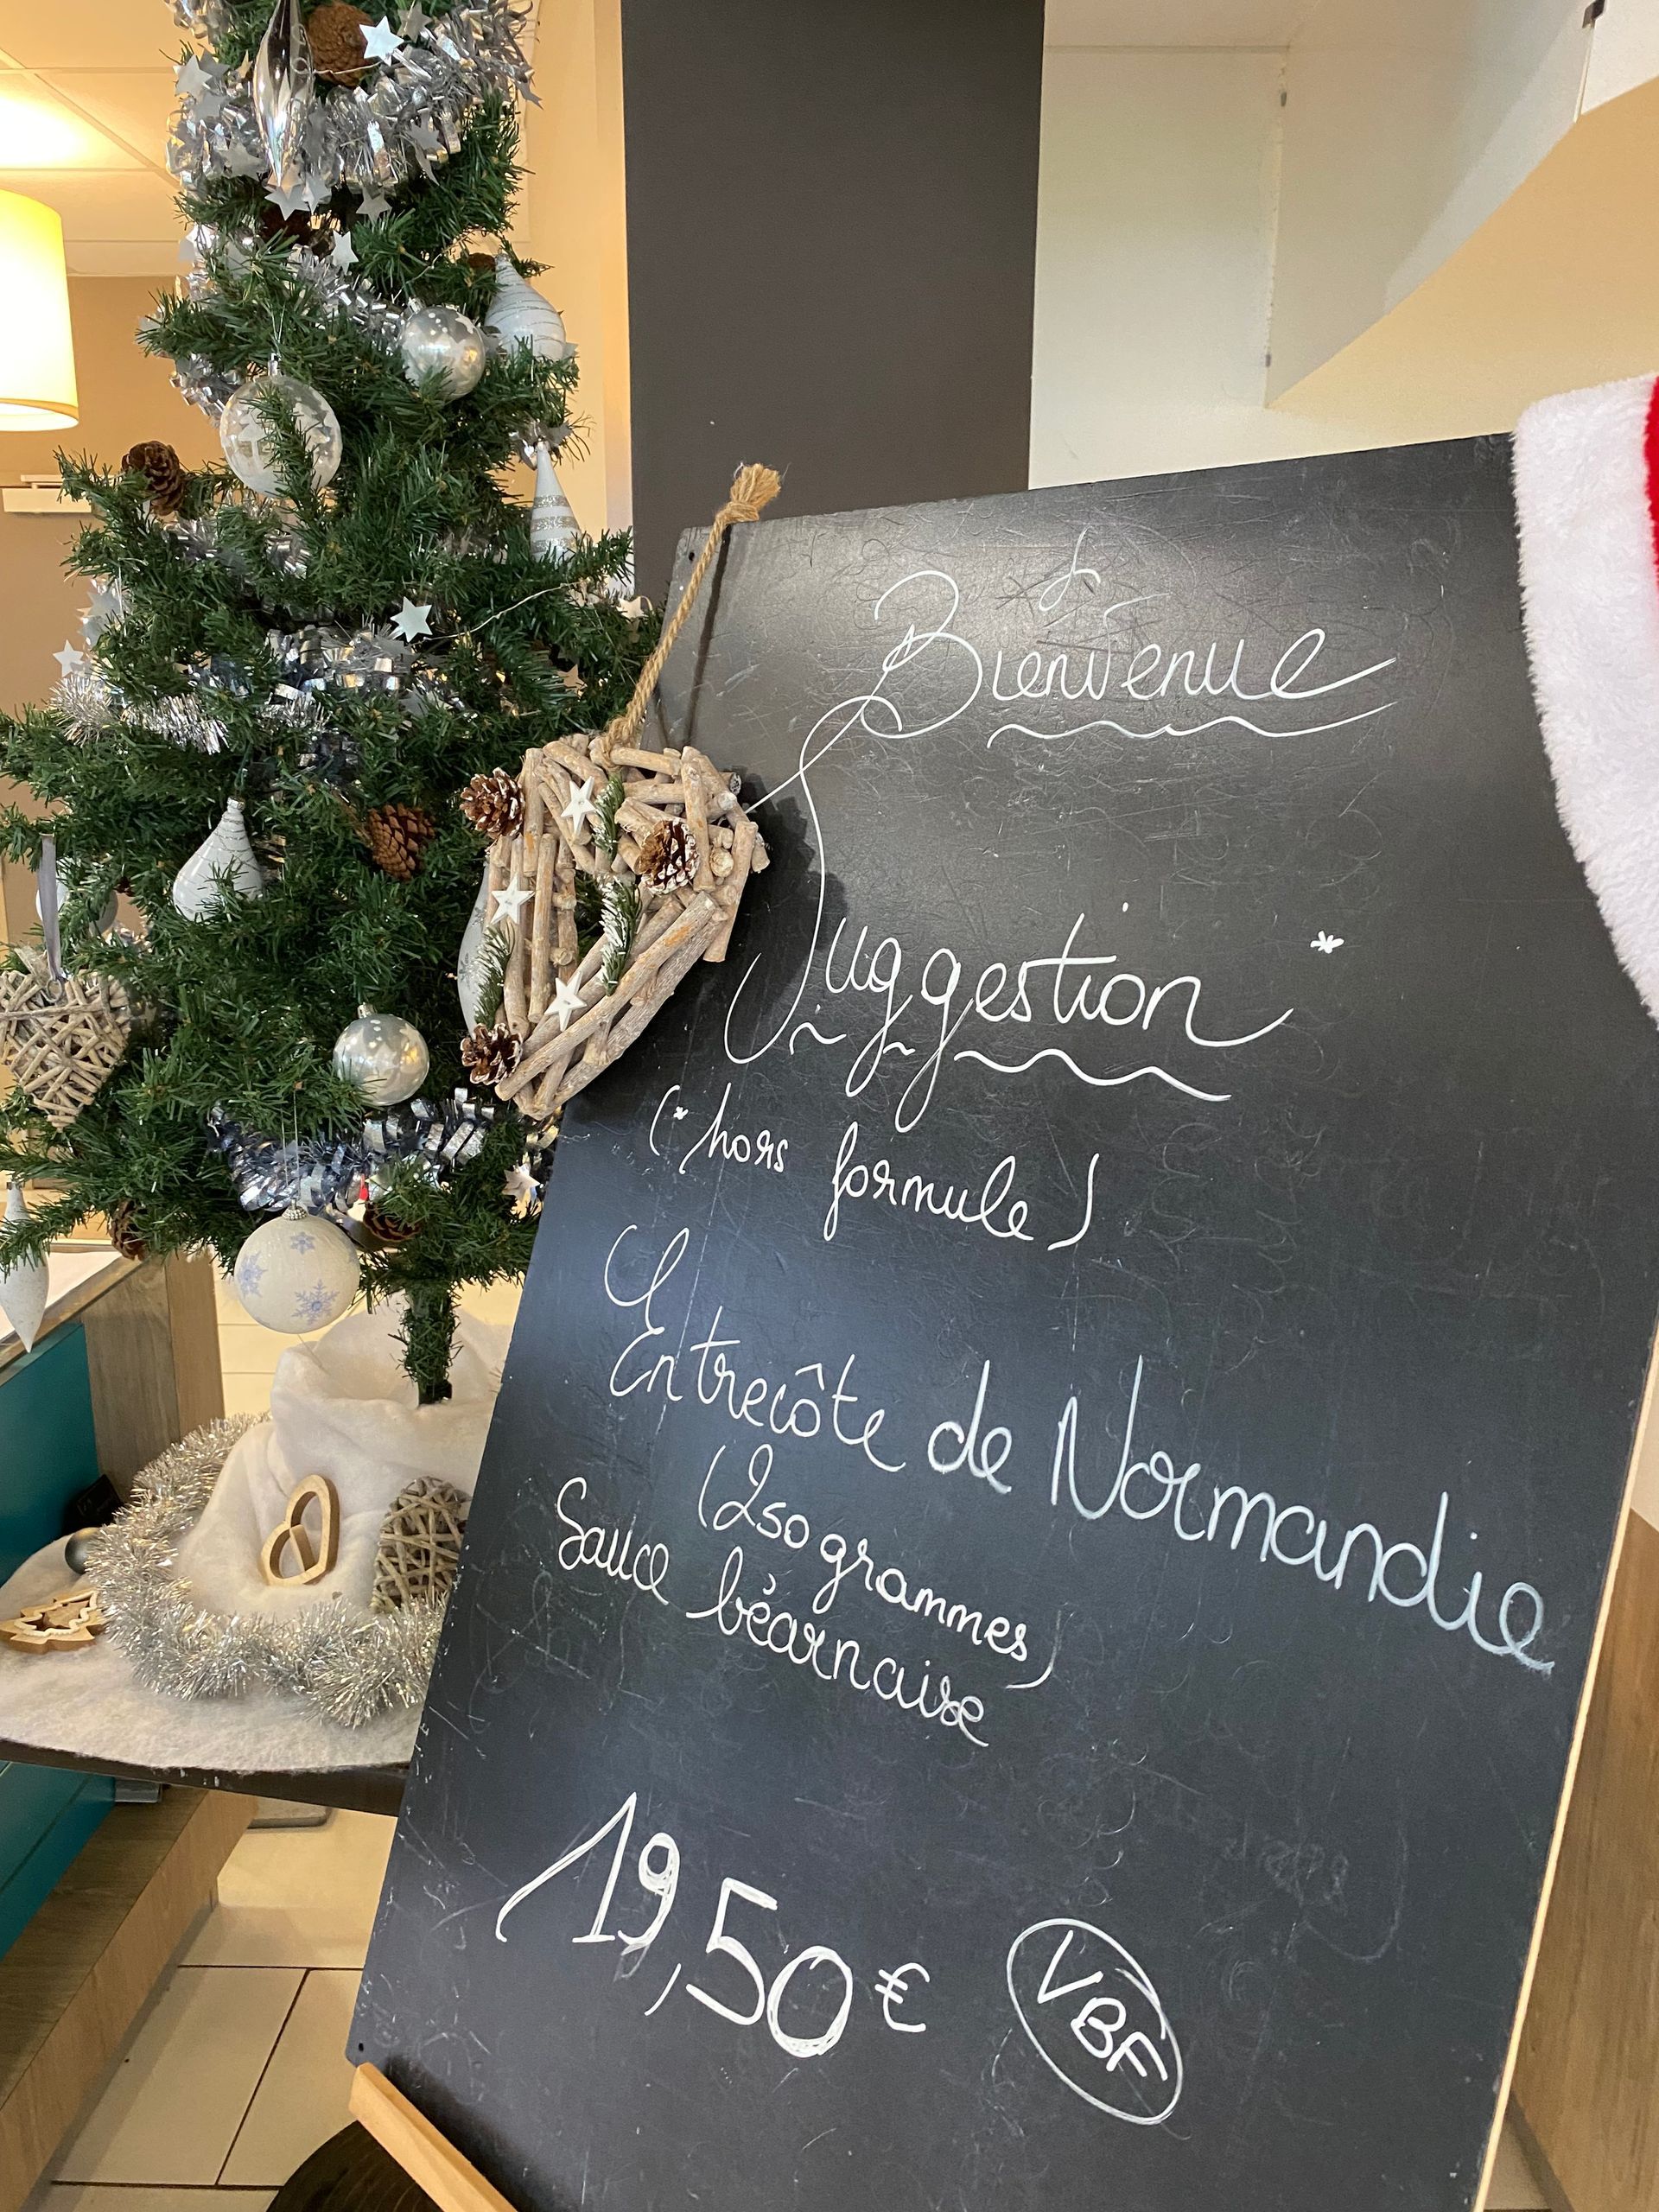 Bienvenue
Suggestion *
(* hors formule)
Entrecôte de Normandie
(250 grammes)
Sauce béarnaise
19,50 €
VBF